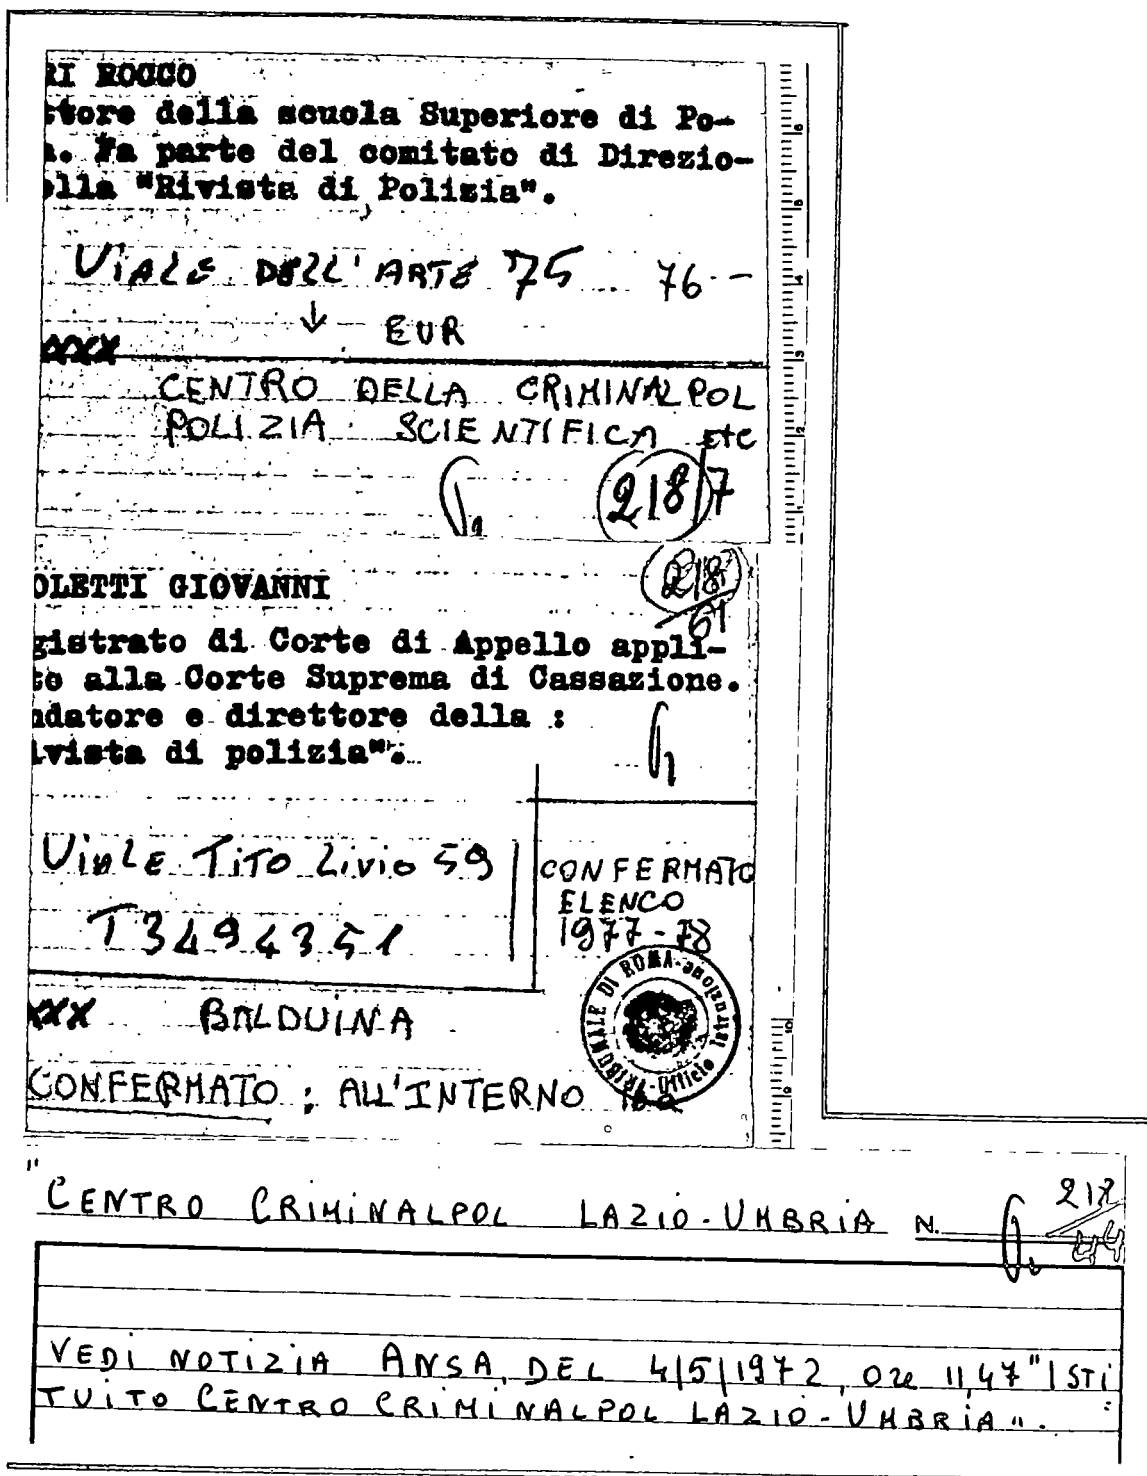 RI ROCCO
tore della scuola Superiore di Po-
a. Fa parte del comitato di Direzio-
ella "Rivista di Polizia".
VIALE DELL'ARTE 75 76 -
↓ EUR
XXXX
CENTRO DELLA CRIMINALPOL
POLIZIA SCIENTIFICA etc
218/7
218/61
OLETTI GIOVANNI
gistrato di Corte di Appello appli-
to alla Corte Suprema di Cassazione.
ndatore e direttore della :
ivista di polizia".
VIALE TITO LIVIO 59
T3494351
CONFERMATO
ELENCO
1977-78
TRIBUNALE DI ROMA - Ufficio Istruzione
XXX BALDUINA
CONFERMATO : ALL'INTERNO
"CENTRO CRIMINALPOL LAZIO-UMBRIA N. 218/44
VEDI NOTIZIA ANSA, DEL 4/5/1972, ore 11,47 "ISTI
TUITO CENTRO CRIMINALPOL LAZIO-UMBRIA".